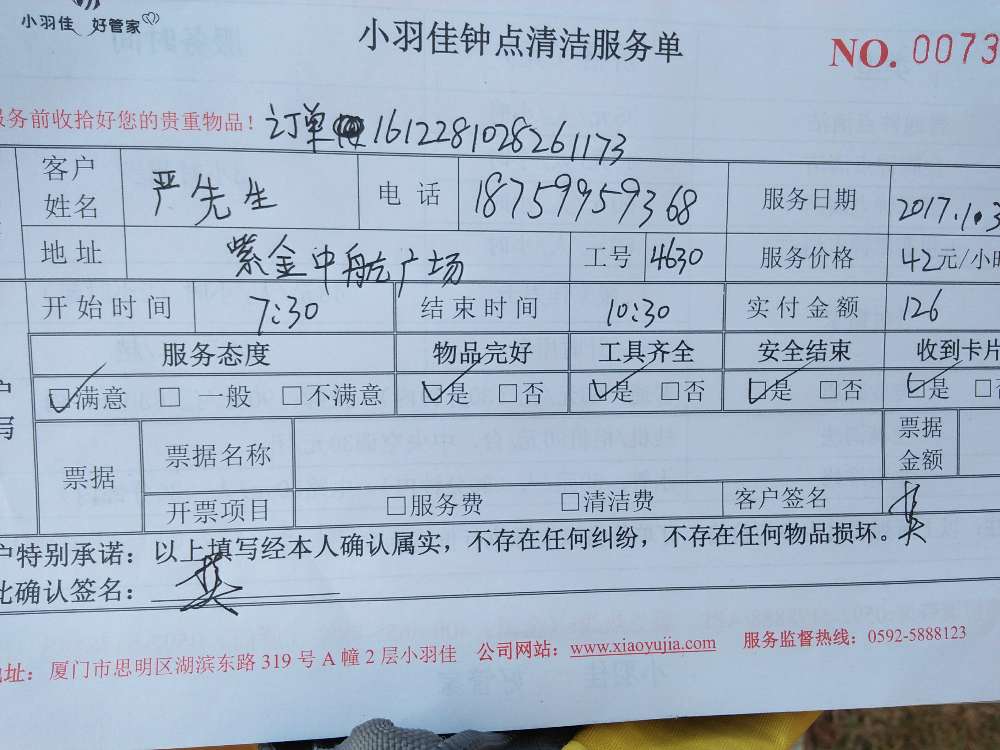 小羽佳 好管家
小羽佳钟点清洁服务单
NO. 0073
服务前收拾好您的贵重物品！ 订单 1612281028261173
客户姓名 严先生 电话 18759959368 服务日期 2017.1.3
地址 紫金中航广场 工号 4630 服务价格 42元/小时
开始时间 7:30 结束时间 10:30 实付金额 126
服务态度 物品完好 工具齐全 安全结束 收到卡片
☑满意 □ 一般 □不满意 ☑是 □否 ☑是 □否 ☑是 □否 ☑是 □
票据 票据名称 票据金额
开票项目 □服务费 □清洁费 客户签名
户特别承诺：以上填写经本人确认属实，不存在任何纠纷，不存在任何物品损坏。
此确认签名：
地址：厦门市思明区湖滨东路 319 号 A 幢 2 层小羽佳 公司网站：www.xiaoyujia.com 服务监督热线：0592-5888123